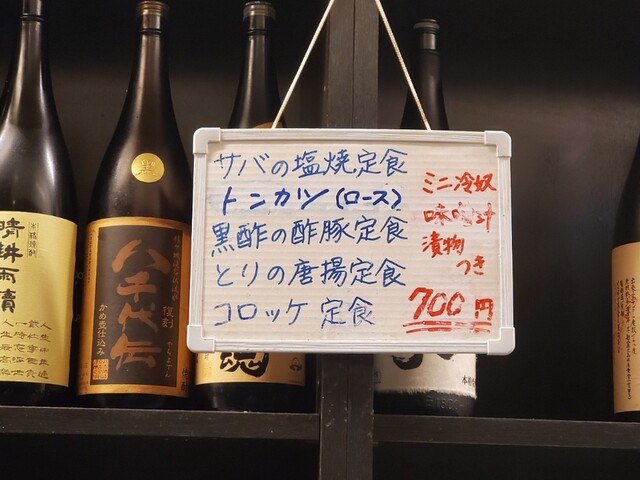 サバの塩焼定食
トンカツ(ロース)
黒酢の酢豚定食
とりの唐揚定食
コロッケ 定食
ミニ冷奴
味噌汁
漬物
つき
700円
晴耕雨讀
本格焼酎
黒
八千代伝
復刻
やちよでん
かめ壺仕込み
魂